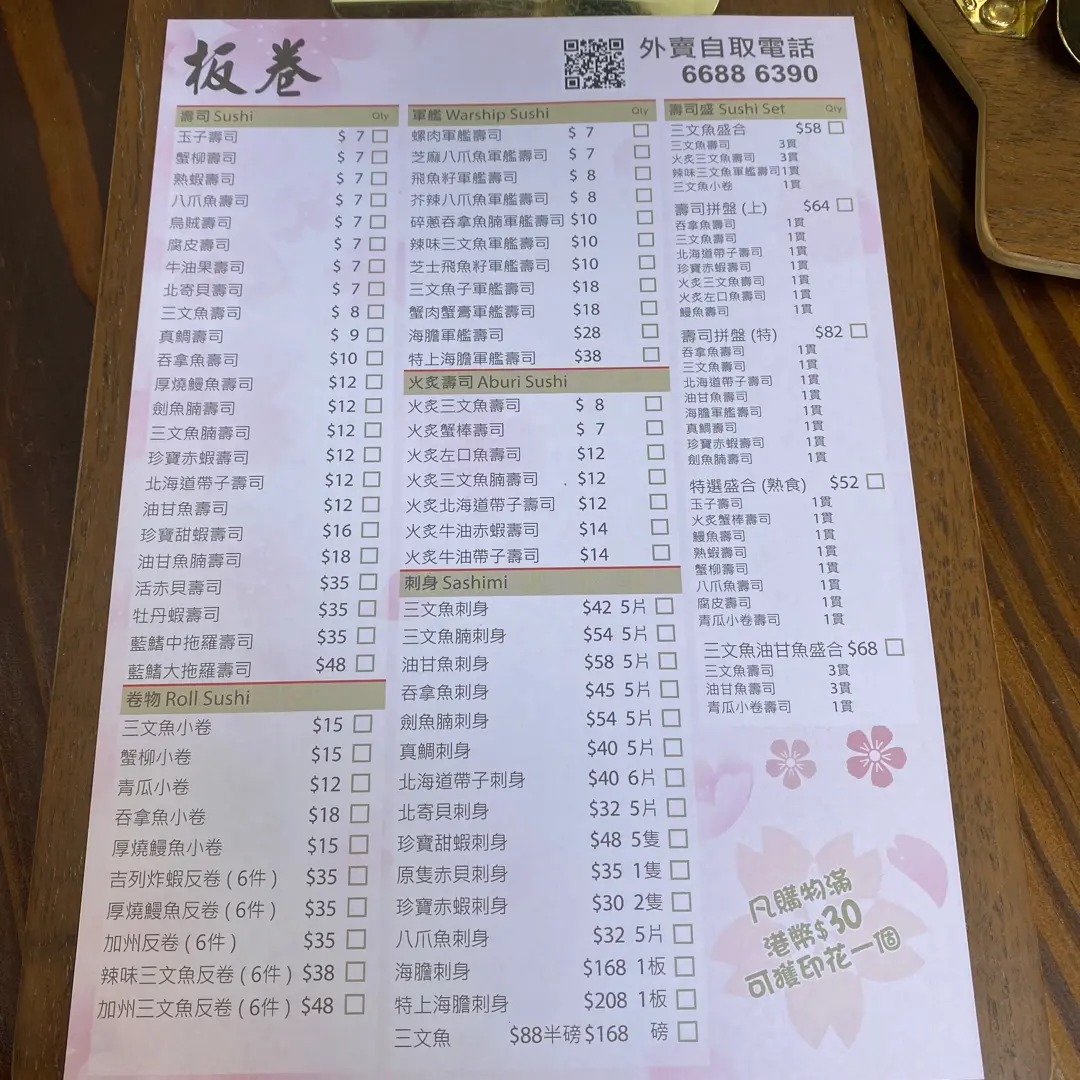 板卷
外賣自取電話
6688 6390
壽司 Sushi
玉子壽司 $ 7
蟹柳壽司 $ 7
熟蝦壽司 $ 7
八爪魚壽司 $ 7
烏賊壽司 $ 7
腐皮壽司 $ 7
牛油果壽司 $ 7
北寄貝壽司 $ 7
三文魚壽司 $ 8
真鯛壽司 $ 9
吞拿魚壽司 $10
厚燒鰻魚壽司 $12
劍魚腩壽司 $12
三文魚腩壽司 $12
珍寶赤蝦壽司 $12
北海道帶子壽司 $12
油甘魚壽司 $12
珍寶甜蝦壽司 $16
油甘魚腩壽司 $18
活赤貝壽司 $35
牡丹蝦壽司 $35
藍鰭中拖羅壽司 $35
藍鰭大拖羅壽司 $48
卷物 Roll Sushi
三文魚小卷 $15
蟹柳小卷 $15
青瓜小卷 $12
吞拿魚小卷 $18
厚燒鰻魚小卷 $15
吉列炸蝦反卷 ( 6件 ) $35
厚燒鰻魚反卷 ( 6件 ) $35
加州反卷 ( 6件 ) $35
辣味三文魚反卷 ( 6件 ) $38
加州三文魚反卷 ( 6件 ) $48
軍艦 Warship Sushi Qty
螺肉軍艦壽司 $ 7
芝麻八爪魚軍艦壽司 $ 7
飛魚籽軍艦壽司 $ 8
芥辣八爪魚軍艦壽司 $ 8
碎蔥吞拿魚腩軍艦壽司 $10
辣味三文魚軍艦壽司 $10
芝士飛魚籽軍艦壽司 $10
三文魚子軍艦壽司 $18
蟹肉蟹膏軍艦壽司 $18
海膽軍艦壽司 $28
特上海膽軍艦壽司 $38
火炙壽司 Aburi Sushi
火炙三文魚壽司 $ 8
火炙蟹棒壽司 $ 7
火炙左口魚壽司 $12
火炙三文魚腩壽司 $12
火炙北海道帶子壽司 $12
火炙牛油赤蝦壽司 $14
火炙牛油帶子壽司 $14
刺身 Sashimi
三文魚刺身 $42 5片
三文魚腩刺身 $54 5片
油甘魚刺身 $58 5片
吞拿魚刺身 $45 5片
劍魚腩刺身 $54 5片
真鯛刺身 $40 5片
北海道帶子刺身 $40 6片
北寄貝刺身 $32 5片
珍寶甜蝦刺身 $48 5隻
原隻赤貝刺身 $35 1隻
珍寶赤蝦刺身 $30 2隻
八爪魚刺身 $32 5片
海膽刺身 $168 1板
特上海膽刺身 $208 1板
三文魚 $88半磅 $168 磅
壽司盛 Sushi Set Qty
三文魚盛合 $58
三文魚壽司 3貫
火炙三文魚壽司 3貫
辣味三文魚軍艦壽司 1貫
三文魚小卷 1貫
壽司拼盤 (上) $64
吞拿魚壽司 1貫
三文魚壽司 1貫
北海道帶子壽司 1貫
珍寶赤蝦壽司 1貫
火炙三文魚壽司 1貫
火炙左口魚壽司 1貫
鰻魚壽司 1貫
壽司拼盤 (特) $82
吞拿魚壽司 1貫
三文魚壽司 1貫
北海道帶子壽司 1貫
油甘魚壽司 1貫
海膽軍艦壽司 1貫
真鯛壽司 1貫
珍寶赤蝦壽司 1貫
劍魚腩壽司 1貫
特選盛合 (熟食) $52
玉子壽司 1貫
火炙蟹棒壽司 1貫
鰻魚壽司 1貫
熟蝦壽司 1貫
蟹柳壽司 1貫
八爪魚壽司 1貫
腐皮壽司 1貫
青瓜小卷壽司 1貫
三文魚油甘魚盛合 $68
三文魚壽司 3貫
油甘魚壽司 3貫
青瓜小卷壽司 1貫
凡購物滿
港幣$30
可獲印花一個